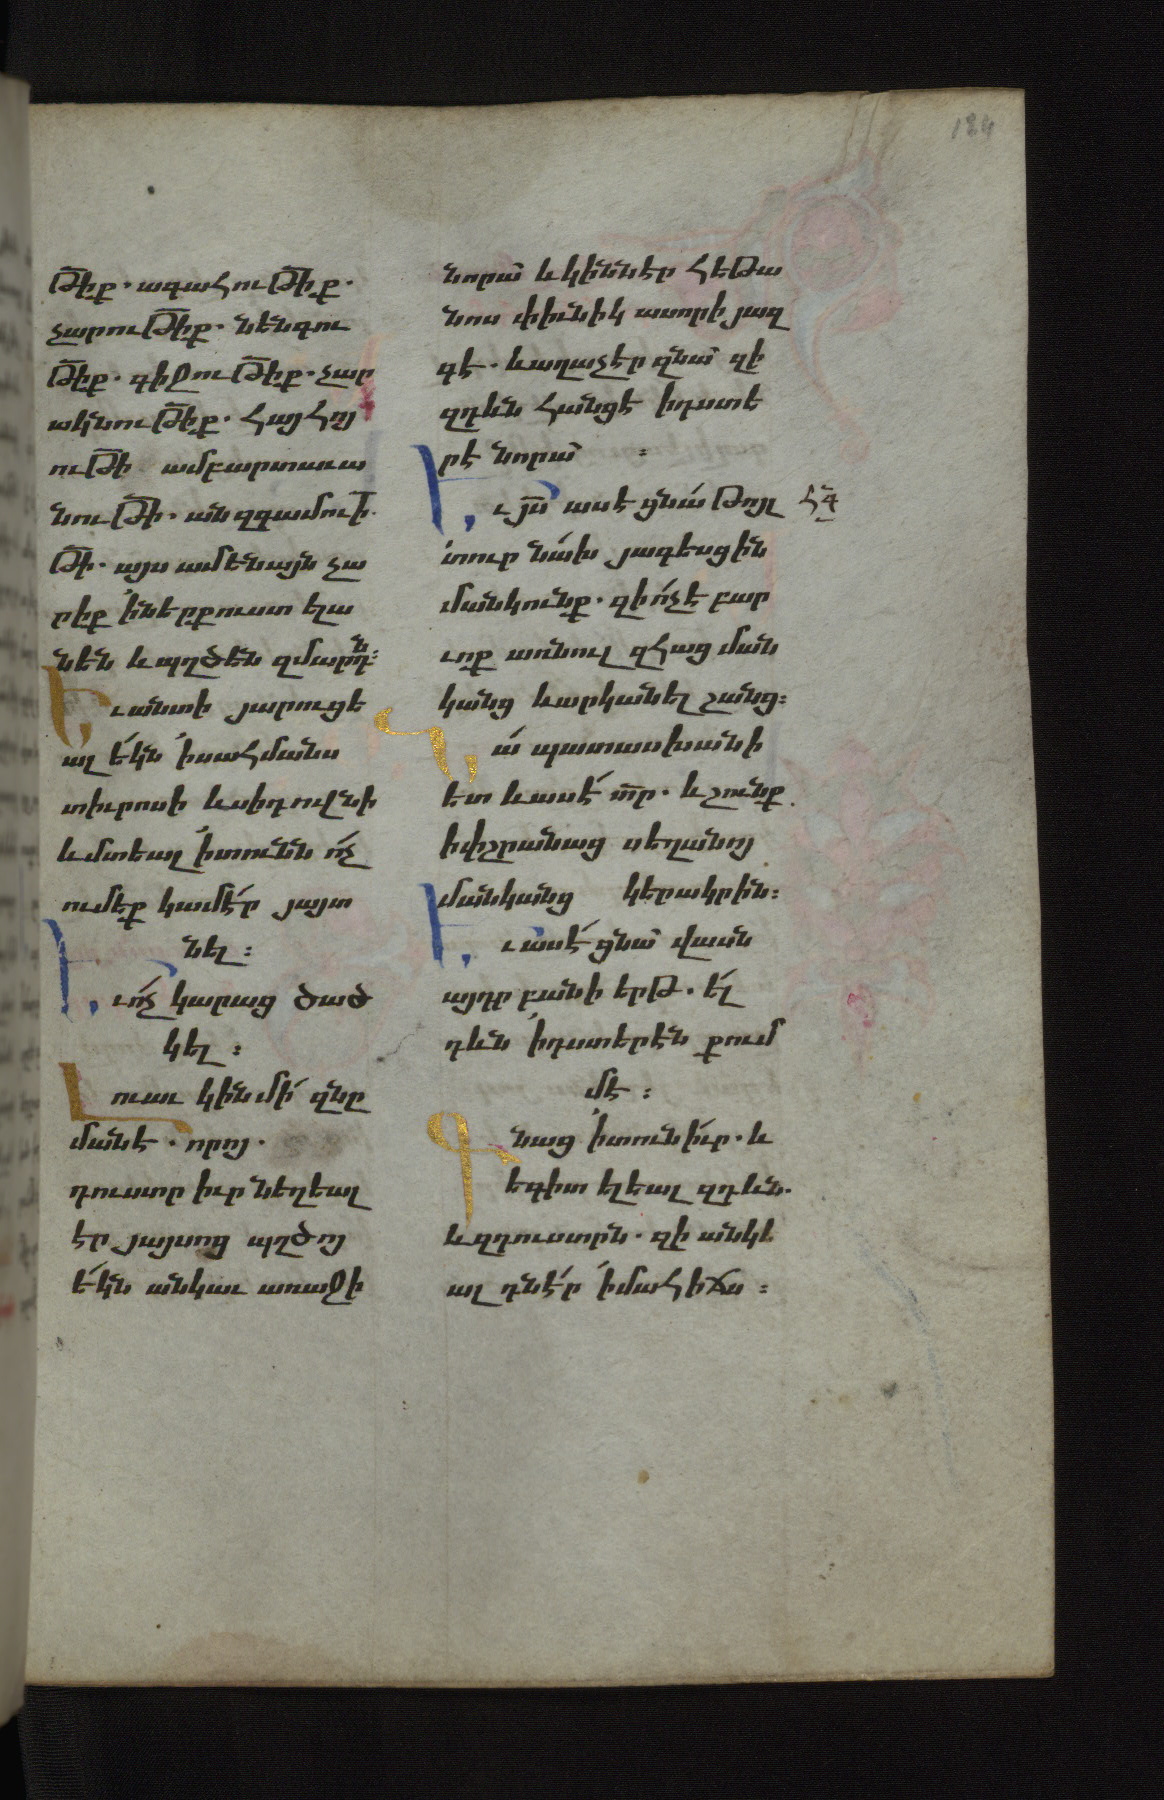 184
թի̅ք. ագահութի̅ք.
չարութի̅ք. նենգու
թի̅ք. գիջութի̅ք. չար
ակնութի̅ք. հայհոյ
ութի̅ ամբարտաւա
նութի̅. անզգամութ̅ի.
թի̅. այս ամենայն չա
րիք ՛իներքուստ ելա
նեն և պղծեն զմարդն։
Եւ անտի յարուցե
ալ ե՛կն ՛իսահմանս
տիւրոսի և սիդովնի
և մտեալ ՛իտունն ո՛չ
ումեք կամէ՛ր յայտ
նել ։
Եւ ո՛չ կարաց ծած
կել ։
Լուաւ կին մի՛ զնը
մանէ. որոյ.
դուստր իւր նեղեալ
էր յայսոց պղծոյ
ե՛կն անկաւ առաջի
նորա̅ և կինն էր հեթա
նոս փիւնիկ ասորի յազ
գէ. և աղաչէր զնա̅ զի
զդևն հանցէ ՛իդստե
րէ նորա̅ ։
Եւ յ̅ս ասէ ցնա՛ թոյլ
հ̅գ
տուր նա՛խ յագեսցին
մանկունք. զի ո՛չ է բար
ւոք առնուլ զհաց ման
կանց և արկանել շանց։
Նա՛ պատասխանի
ետ և ասէ՛ տ̅ր. և շունք
իփշրանաց սեղանոյ
մանկանց կերակրին։
Եւ ասէ՛ ցնա̅ վասն
այդր բանի երթ. ե՛լ
դևն ՛իդստերէն քում
մէ ։
Գնաց ՛իտուն ի՛ւր. և
եգիտ ելեալ զդևն.
և զդուստրն. զի անկե
ալ դնէ՛ր ՛իմահիճս ։